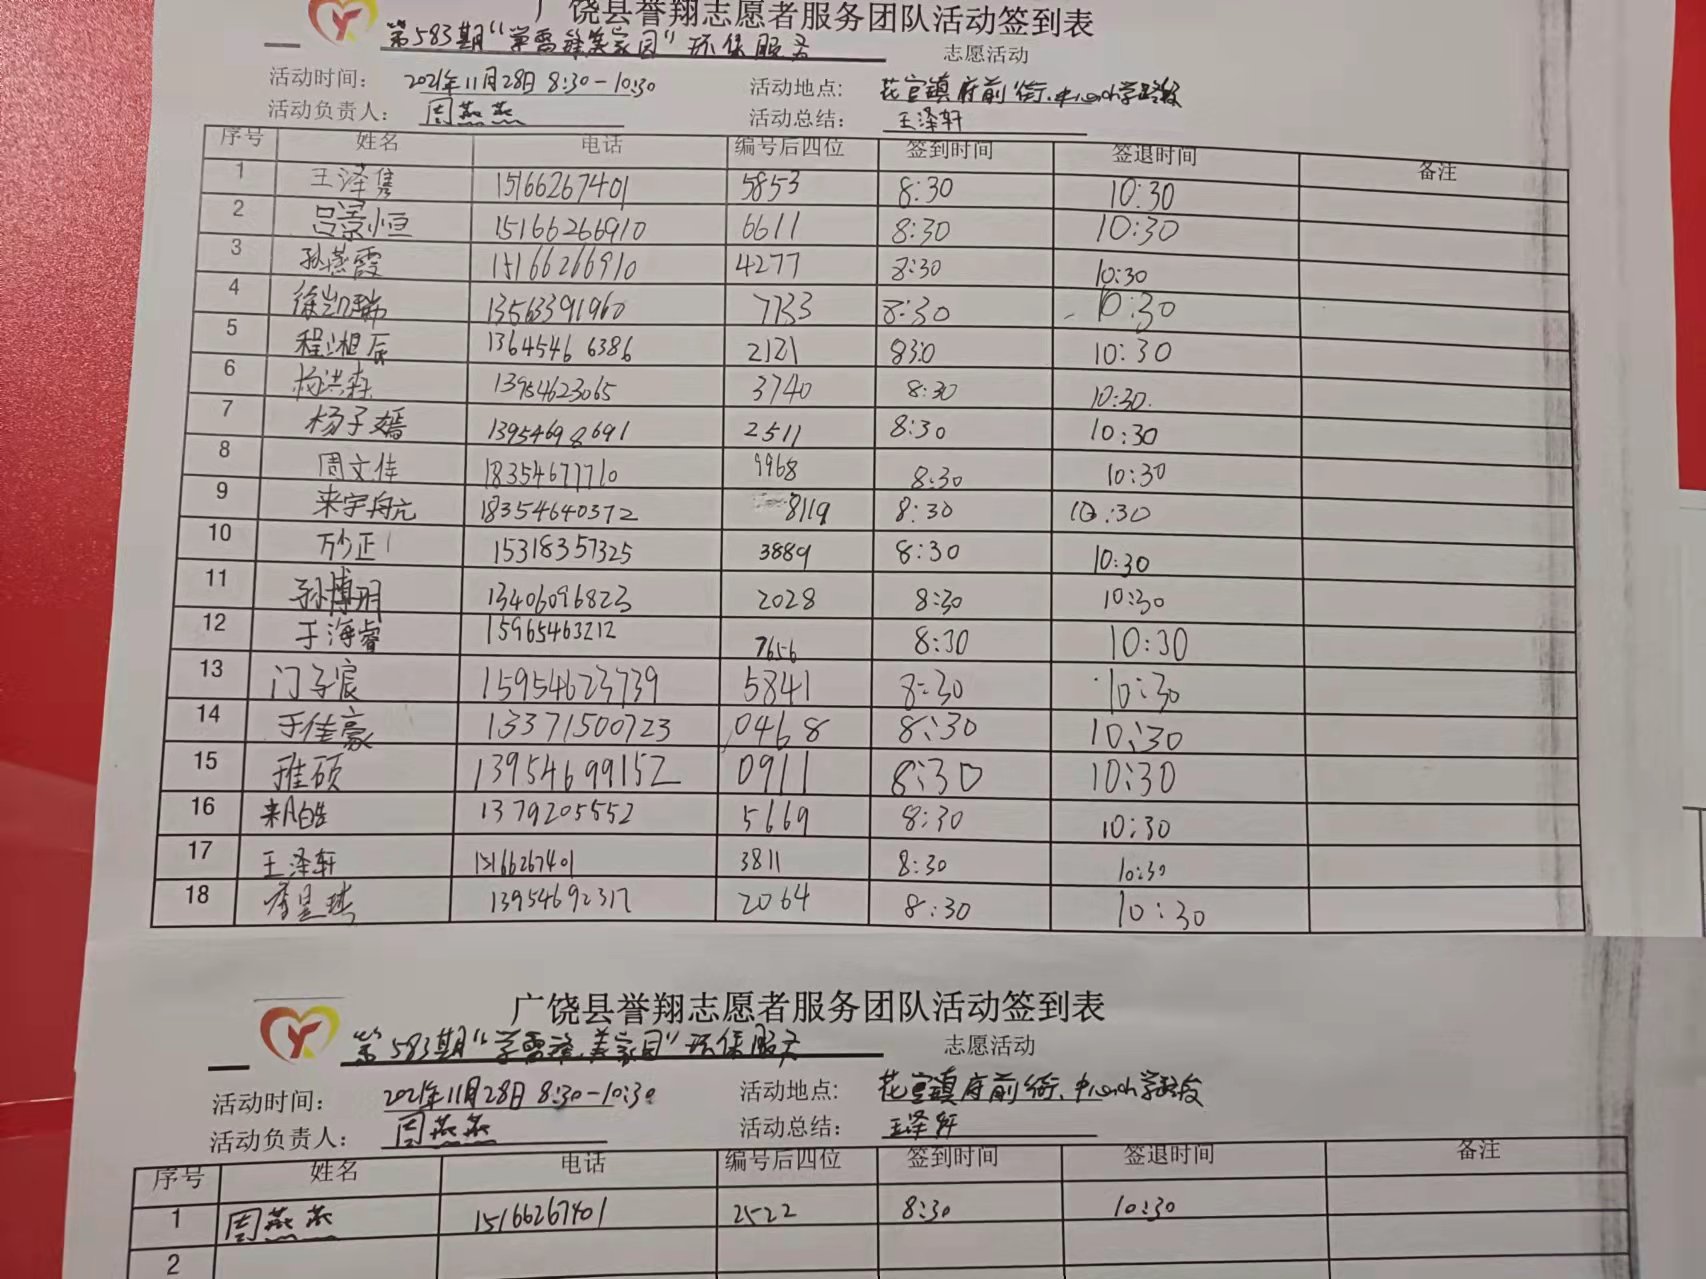 广饶县誉翔志愿者服务团队活动签到表
第583期“学雷锋美家园”环保服务 志愿活动
活动时间: 2021年11月28日 8:30-10:30 活动地点: 花官镇府前街、中心小学
活动负责人: 周燕燕 活动总结: 王泽轩
序号 姓名 电话 编号后四位 签到时间 签退时间 备注
1 王泽隽 15166267401 5853 8:30 10:30
2 吕景恒 15166266910 6611 8:30 10:30
3 孙燕霞 15166266910 4277 8:30 10:30
4 徐凯瑞 13563391960 7733 8:30 10:30
5 程湘辰 13645466386 2121 830 10:30
6 杨洪森 13954623065 3740 8:30 10:30.
7 杨子嫣 13954698691 2511 8:30 10:30
8 周文佳 18354677710 9968 8:30 10:30
9 来宇舟元 18354640372 8119 8:30 10:30
10 15318357325 3889 8:30 10:30
11 孙博玥 13406096823 2028 8:30 10:30
12 于海睿 15965463212 7656 8:30 10:30
13 门子宸 15954623739 5841 8:30 10:30
14 于佳豪 13371500723 0468 8:30 10:30
15 13954699152 0911 8:30 10:30
16 1379205552 5669 8:30 10:30
17 王泽轩 15166267401 3811 8:30 10:30
18 13954692317 2064 8:30 10:30
广饶县誉翔志愿者服务团队活动签到表
第583期“学雷锋美家园”环保服务 志愿活动
活动时间: 2021年11月28日 8:30-10:30 活动地点: 花官镇府前街、中心小学
活动负责人: 周燕燕 活动总结: 王泽轩
序号 姓名 电话 编号后四位 签到时间 签退时间 备注
1 周燕燕 15166267401 2522 8:30 10:30
2